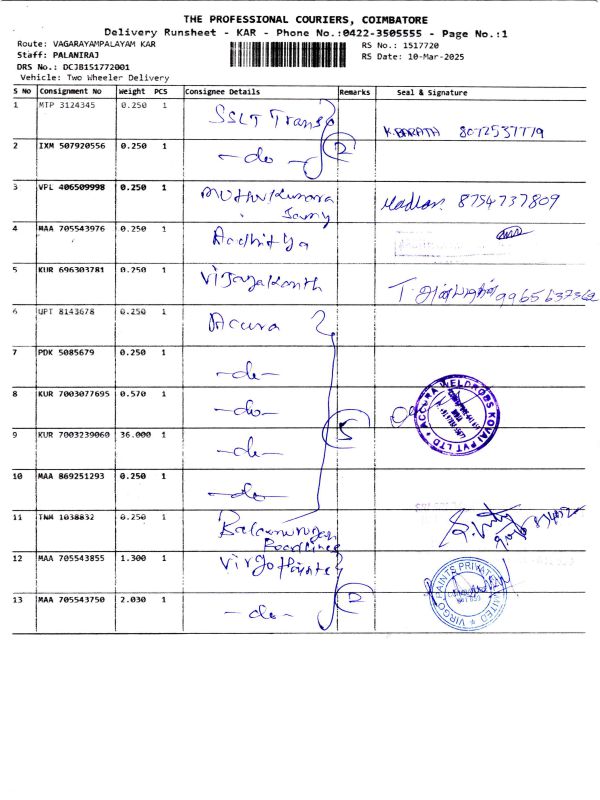 THE PROFESSIONAL COURIERS, COIMBATORE
Delivery Runsheet - KAR - Phone No.:0422-3505555 - Page No.:1
Route: VAGARAYAMPALAYAM KAR
RS No.: 1517720
Staff: PALANIRAJ
RS Date: 10-Mar-2025
DRS No.: DCJB151772001
Vehicle: Two Wheeler Delivery
S No Consignment No Weight PCS Consignee Details Remarks Seal & Signature
1 MTP 3124345 0.250 1 SSLT Transpo K.BARATH 8072537779
2 IXM 507920556 0.250 1 -do- 2
3 VPL 406509998 0.250 1 Muthukumara Samy Madhan 8754737809
4 MAA 705543976 0.250 1 Aadhitya
5 KUR 696303781 0.250 1 Vijayakanth 9965637362
6 UPT 8143678 0.250 1 Accura
7 PDK 5085679 0.250 1 -do-
8 KUR 7003077695 0.570 1 -do- ACCURA WELDROBS KOVAI PVT LTD
9 KUR 7003239060 36.000 1 -do- 5
10 MAA 869251293 0.250 1 -do-
11 TNM 1038832 0.250 1 Balamurugan
12 MAA 705543855 1.300 1 Virgo Paintes VIRGO PAINTS PRIVATE LIMITED
13 MAA 705543750 2.030 1 -do- 2